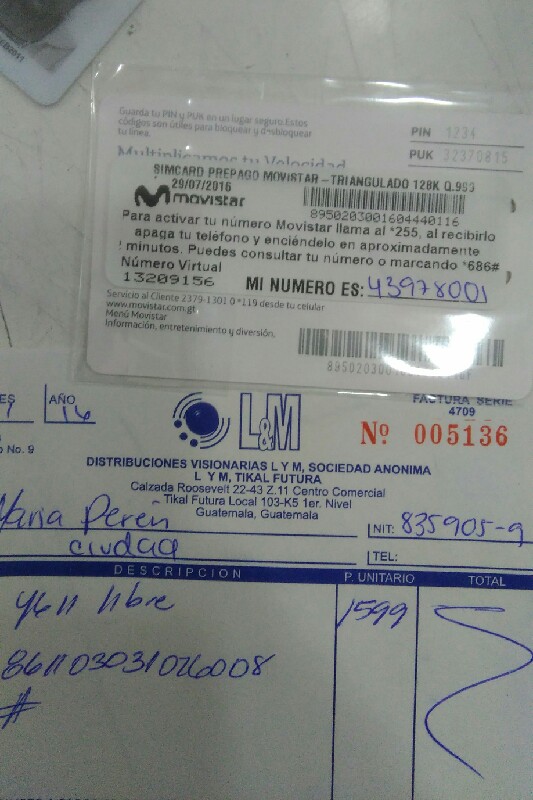 Guarda tu PIN y PUK en un lugar seguro. Estos
códigos son útiles para bloquear y desbloquear
tu línea.
PIN 1234
PUK 32370815
Multiplicamos tu Velocidad
SIMCARD PREPAGO MOVISTAR - TRIANGULADO 128K Q.99
29/07/2016
movistar
8950203001604440116
Para activar tu número Movistar llama al *255, al recibirlo
apaga tu teléfono y enciéndelo en aproximadamente
minutos. Puedes consultar tu número marcando *686#
Número Virtual
13209156
MI NUMERO ES: 43978001
Servicio al Cliente 2379-1301 o *119 desde tu celular
www.movistar.com.gt
Menú Movistar
Información, entretenimiento y diversión.
AÑO
16
L&M
FACTURA SERIE
4709
Nº 005136
No. 9
DISTRIBUCIONES VISIONARIAS L Y M, SOCIEDAD ANONIMA
L Y M, TIKAL FUTURA
Calzada Roosevelt 22-43 Z.11 Centro Comercial
Tikal Futura Local 103-K5 1er. Nivel
Guatemala, Guatemala
Maria Peren
NIT: 835905-9
ciudad
TEL:
DESCRIPCION P. UNITARIO TOTAL
Y611 libre 1599
861103031026008
#